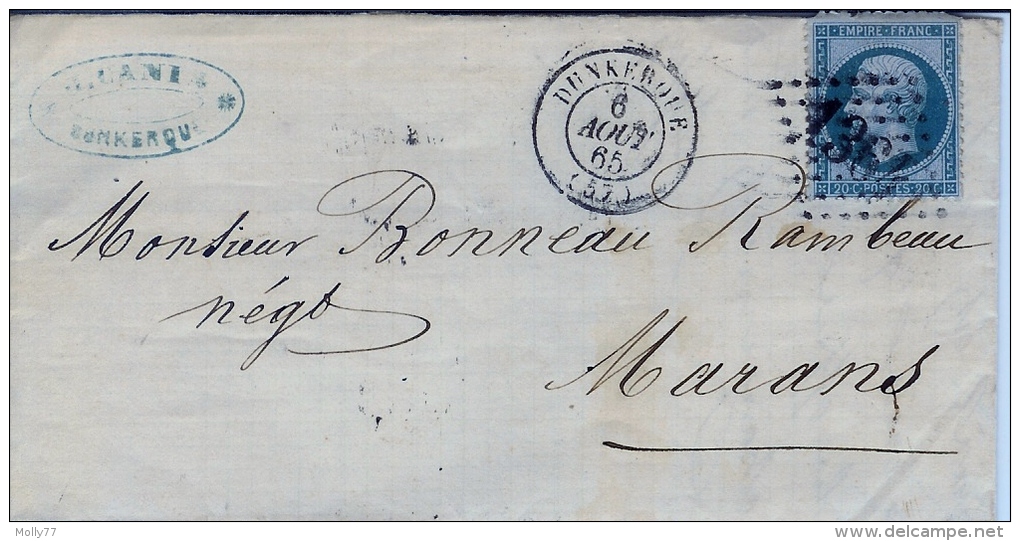 DUNKERQUE
DUNKERQUE
6
AOUT
65
(57)
EMPIRE FRANC
20 C POSTES 20 C
Monsieur Bonneau Rambeau
négt
Marans
Molly77
www.delcampe.net